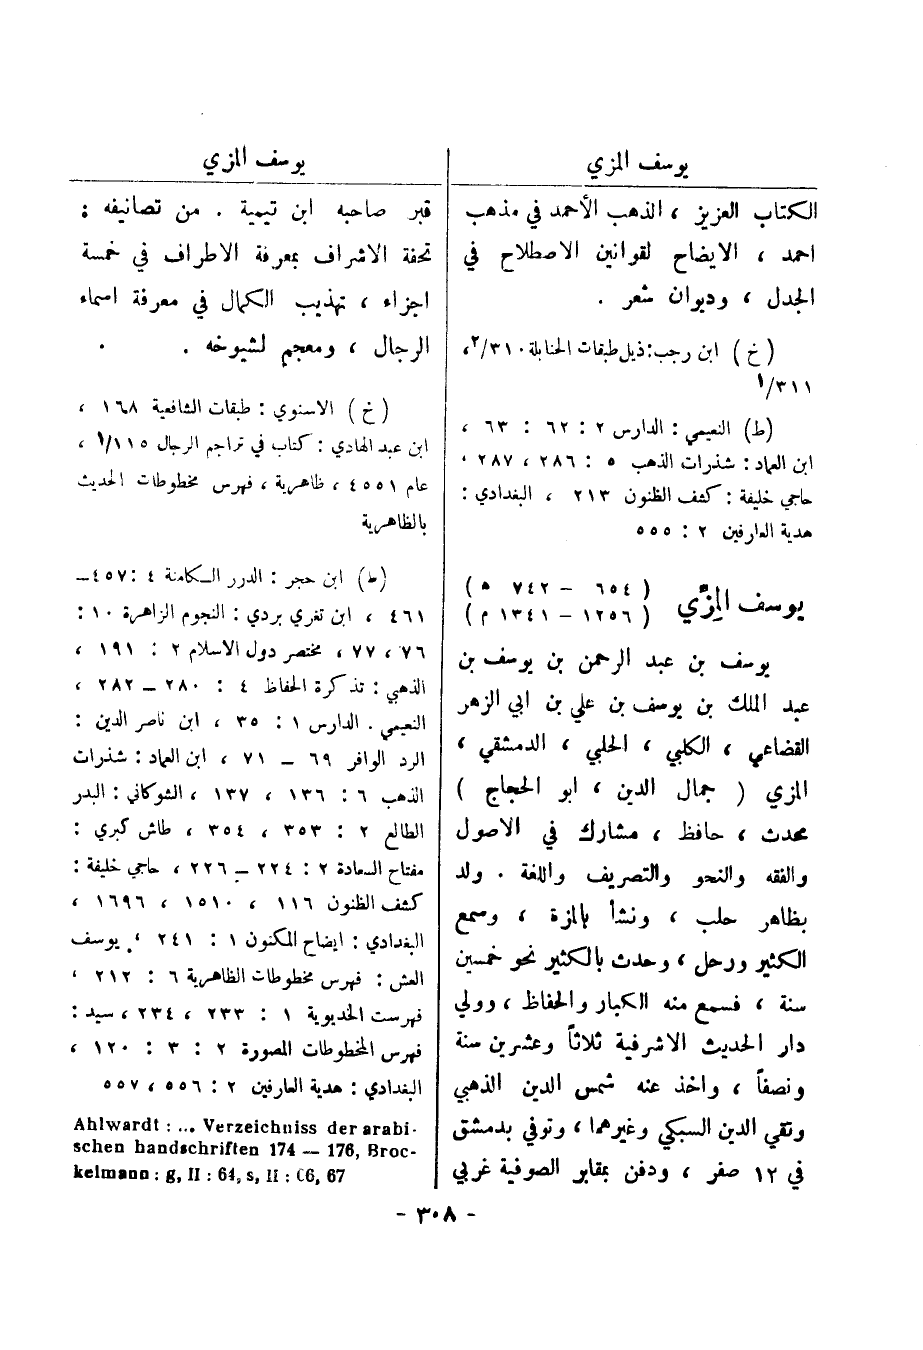 يوسف المزي
الكتاب العزيز ، الذهب الأحمد في مذهب
احمد ، الايضاح لقوانين الاصطلاح في
الجدل ، وديوان شعر .
(خ) ابن رجب : ذيل طبقات الحنابلة ٣١٠/٢،
٣١١/١
(ط) النعيمي : الدارس ٢ : ٦٢ : ٦٣ ،
ابن العماد : شذرات الذهب ٥ : ٢٨٦ ، ٢٨٧ ،
حاجي خليفة : كشف الظنون ٢١٣ ، البغدادي :
هدية العارفين ٢ : ٥٥٥
يوسف المِزّي ( ٦٥٤ – ٧٤٢ ه )
( ١٢٥٦ – ١٣٤١ م )
يوسف بن عبد الرحمن بن يوسف بن
عبد الملك بن يوسف بن علي بن ابي الزهر
القضاعي ، الكلبي ، الحلبي ، الدمشقي ،
المزي ( جمال الدين ، ابو الحجاج )
محدث ، حافظ ، مشارك في الاصول
والفقه والنحو والتصريف واللغة . ولد
بظاهر حلب ، ونشأ بالمزة ، وسمع
الكثير ورحل ، وحدث بالكثير نحو خمسين
سنة ، فسمع منه الكبار والحفاظ ، وولي
دار الحديث الاشرفية ثلاثاً وعشرين سنة
ونصفاً ، واخذ عنه شمس الدين الذهبي
وتقي الدين السبكي وغيرهما ، وتوفي بدمشق
في ١٢ صفر ، ودفن بمقابر الصوفية غربي
يوسف المزي
قبر صاحبه ابن تيمية . من تصانيفه :
تحفة الاشراف بمعرفة الاطراف في خمسة
اجزاء ، تهذيب الكمال في معرفة اسماء
الرجال ، ومعجم لشيوخه .
(خ) الاسنوي : طبقات الشافعية ١٦٨ ،
ابن عبد الهادي : كتاب في تراجم الرجال ١١٥/١ ،
عام ٤٥٥١ ، ظاهرية ، فهرس مخطوطات الحديث
بالظاهرية
(ط) ابن حجر : الدرر الكامنة ٤ : ٤٥٧–
٤٦١ ، ابن تغري بردي : النجوم الزاهرة ١٠ :
٧٦ ، ٧٧ ، مختصر دول الاسلام ٢ : ١٩١ ،
الذهبي : تذكرة الحفاظ ٤ : ٢٨٠ – ٢٨٢ ،
النعيمي . الدارس ١ : ٣٥ ، ابن ناصر الدين :
الرد الوافر ٦٩ – ٧١ ، ابن العماد : شذرات
الذهب ٦ : ١٣٦ ، ١٣٧ ، الشوكاني : البدر
الطالع ٢ : ٣٥٣ ، ٣٥٤ ، طاش كبري :
مفتاح السعادة ٢ : ٢٢٤ – ٢٢٦ ، حاجي خليفة :
كشف الظنون ١١٦ ، ١٥١٠ ، ١٦٩٦ ،
البغدادي : ايضاح المكنون ١ : ٢٤١ ، يوسف
العش : فهرس مخطوطات الظاهرية ٦ : ٢١٢ ،
فهرست الخديوية ١ : ٢٣٣ ، ٢٣٤ ، سيد :
فهرس المخطوطات المصورة ٢ : ٣ : ١٢٠ ،
البغدادي : هدية العارفين ٢ : ٥٥٦ ، ٥٥٧
Ahlwardt : ... Verzeichniss der arabi-
schen handschriften 174 — 176, Broc-
kelmann : g, II : 64, s, II : 66, 67
- ٣٠٨ -